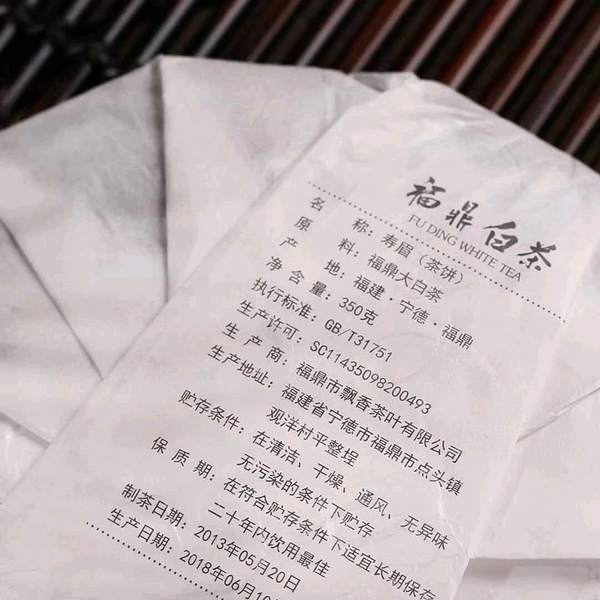 福鼎白茶
FU DING WHITE TEA
名 称：寿眉（茶饼）
原 料：福鼎大白茶
产 地：福建·宁德·福鼎
净 含 量：350克
执行标准：GB/T31751
生产许可：SC11435098200493
生 产 商：福鼎市飘香茶叶有限公司
生产地址：福建省宁德市福鼎市点头镇
观洋村平整埕
贮存条件：在清洁、干燥、通风、无异味
无污染的条件下贮存
保 质 期：在符合贮存条件下适宜长期保存
二十年内饮用最佳
制茶日期：2013年05月20日
生产日期：2018年06月10